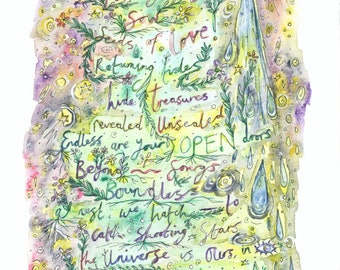 Sow
Seas of Love
Returning tides
hide treasures
revealed Unsealed
Endless are your OPEN doors
Beyond Songs
Boundless
a net we hatch to
catch Shooting Stars
the Universe is Ours, in